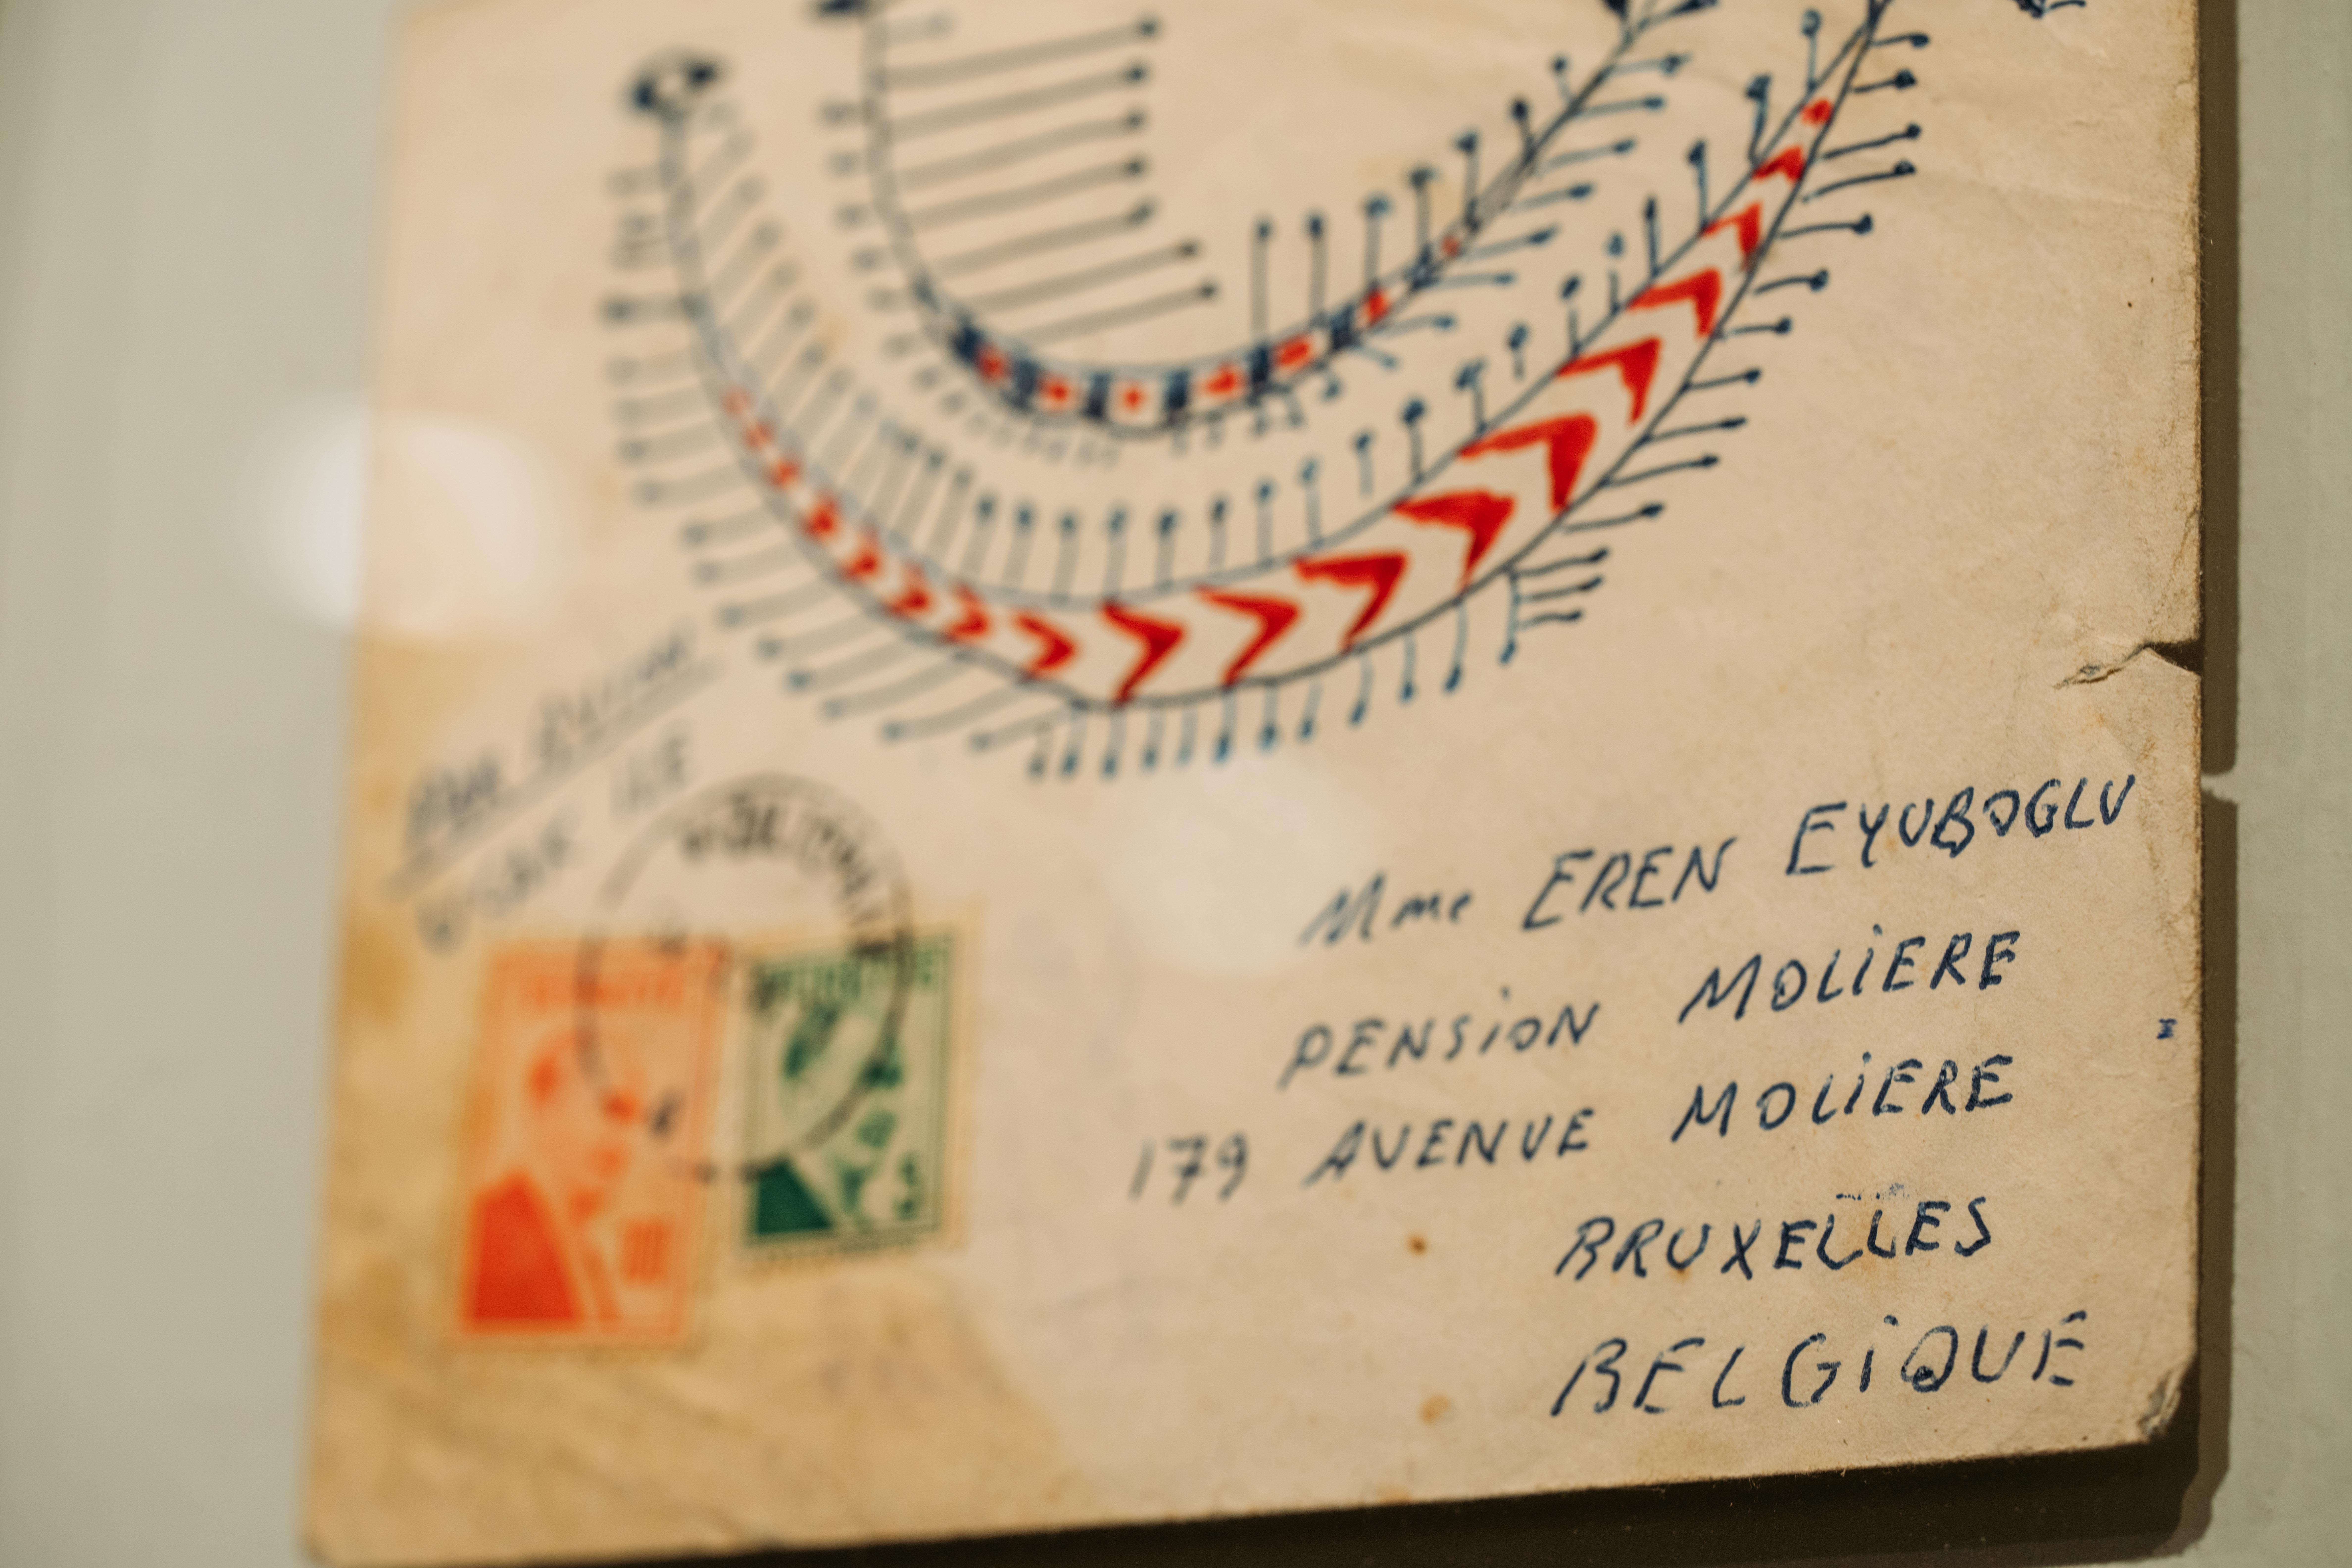 UÇAK İLE
Mme EREN EYUBOGLU
PENSiON MOLiERE
179 AVENUE MOLiERE
BRUXELLES
BELGiQUE